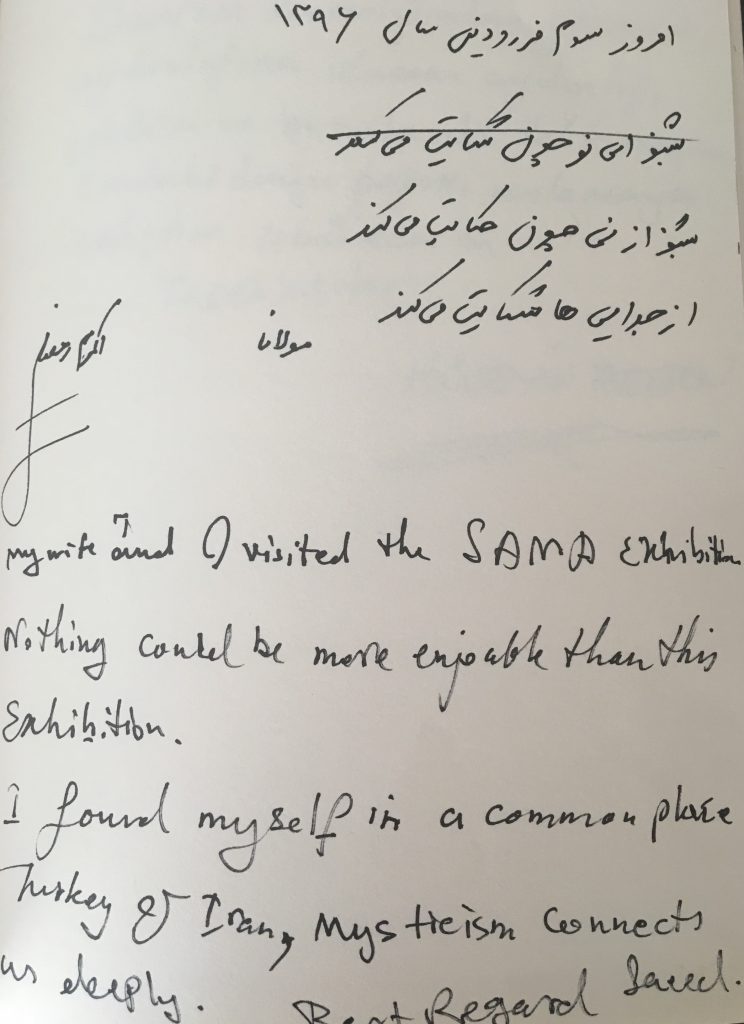 امروز سوم فروردین سال ۱۳۹۶
بشنو این نی چون شکایت می‌کند
بشنو از نی چون حکایت می‌کند
از جدایی ها شکایت می‌کند
مولانا
اکرم
my wife and I visited the SAMA Exhibition
Nothing could be more enjoable than this
Exhibition.
I found myself in a common place
Turkey & Iran, Mysticism connects
us deeply.
Best Regard Saeed.